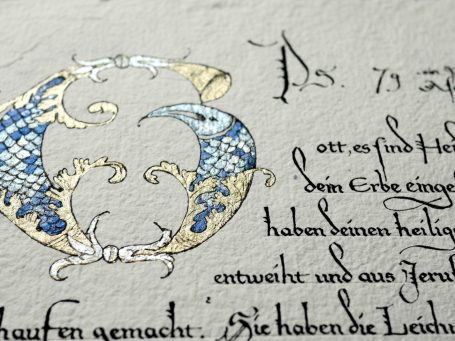 Ps. 79
G
ott, es sind Hei
dein Erbe einge
haben deinen heilig
entweiht und aus Jeru
haufen gemacht. Sie haben die Leich